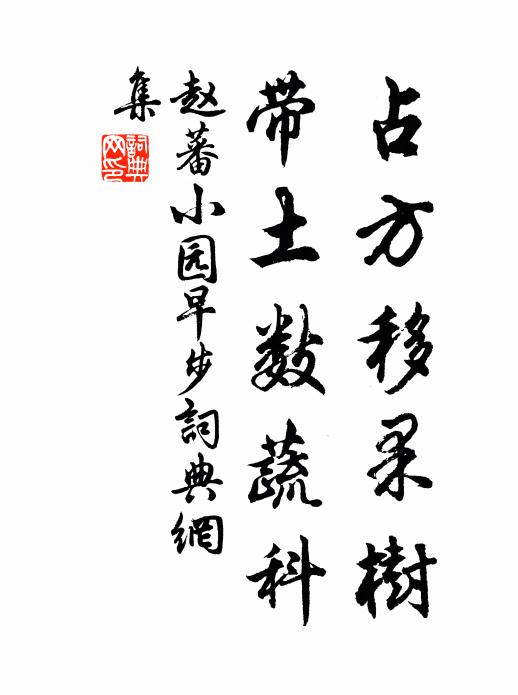 占方移果樹
带土数蔬科
赵蕃小园早步詞典網
集
詞典
网印